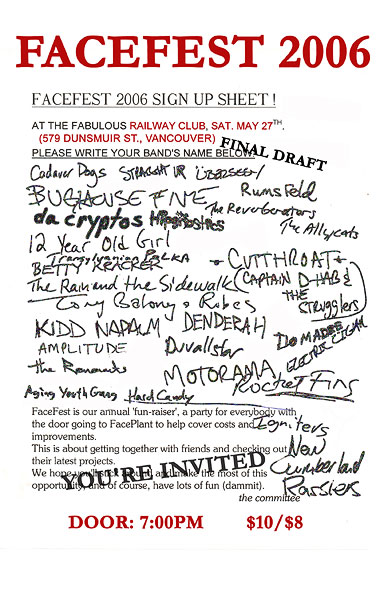 FACEFEST 2006
FACEFEST 2006 SIGN UP SHEET !
AT THE FABULOUS RAILWAY CLUB, SAT. MAY 27TH.
(579 DUNSMUIR ST., VANCOUVER)
PLEASE WRITE YOUR BAND'S NAME BELOW
FINAL DRAFT
Cadaver Dogs STRAIGHT UP
BUGHOUSE FIVE Rumsfeld
The Reverberators
da cryptos The Alleycats
12 Year Old Girl
Transylvanian POLKA - CUTTHROAT -
BETTY KRACKER
The Rain and the Sidewalk (CAPTAIN D-HAB &
THE STRUGGLERS)
Cory Balony & Ribes
KIDD NAPALM DENDERAH
AMPLITUDE Duvallstar
the MOTORAMA, ELECTRIC
Rocket Fins
Aging Youth Gang Hard Candy
FaceFest is our annual 'fun-raiser', a party for everybody with
the door going to FacePlant to help cover costs and
improvements.
Igniters
This is about getting together with friends and checking out
their latest projects.
We hope you'll stick around and make the most of this
opportunity, and of course, have lots of fun (dammit).
YOU'RE INVITED
New
Cumberland
Rossiers
the committee
DOOR: 7:00PM $10/$8